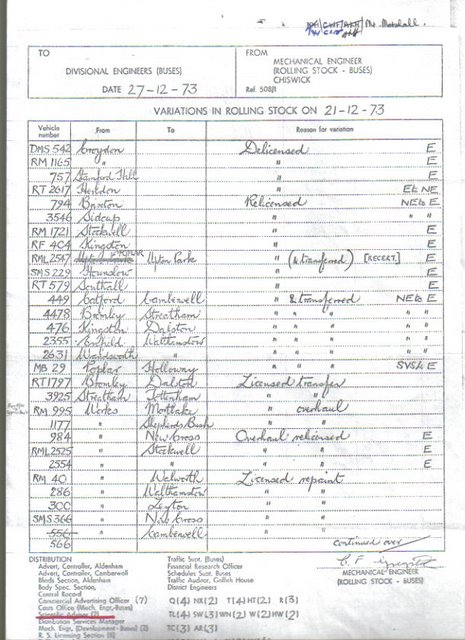 Mr. Marshall
TO
DIVISIONAL ENGINEERS (BUSES)
DATE 27-12-73
FROM
MECHANICAL ENGINEER
(ROLLING STOCK - BUSES)
CHISWICK
Ref. 508/1
VARIATIONS IN ROLLING STOCK ON 21-12-73
Vehicle number From To Reason for variation
DMS 542 Croydon Delicensed E
RM 1165 " " E
757 Stamford Hill " E
RT 2617 Hendon " E to NE
794 Brixton Relicensed NE to E
3546 Sidcup " " "
RM 1721 Stockwell " E
RF 404 Kingston " E
RML 2547 POPLAR Upton Park " (& transferred) [RECERT.] E
SMS 229 Hounslow " E
RT 579 Southall " E
449 Catford Camberwell " & transferred NE to E
4478 Bromley Streatham " " " " "
476 Kingston Dalston " " " " "
2355 Enfield Walthamstow " " " " "
2631 Wandsworth " " " " " "
MB 29 Poplar Holloway " " " SVS to E
RT 1797 Bromley Dalston Licensed transfer
3925 Streatham Tottenham " "
RM 995 Works Mortlake " overhaul
1177 " Shepherds Bush " "
984 " New Cross Overhaul relicensed E
RML 2525 " Stockwell " " E
2554 " " " " E
RM 40 " Walworth Licensed repaint
286 " Walthamstow " "
300 " Leyton " "
SMS 366 " New Cross " "
556 " Camberwell " "
566 continued over
DISTRIBUTION
Advert. Controller, Aldenham
Advert. Controller, Camberwell
Blinds Section, Aldenham
Body Spec. Section,
Control Record
Commercial Advertising Officer (7)
Costs Office (Mech. Engr, Buses)
Scientific Adviser (2)
Distribution Services Manager
Mech. Engr. (Development - Buses) (2)
R. S. Licensing Section (8)
Traffic Supt. (Buses)
Financial Research Officer
Schedules Supt. Buses
Traffic Auditor, Griffith House
District Engineers
Q(4) NX(2) T(4) HT(2) R(3)
TL(4) SW(3) WN(2) W(2) HW(2)
TC(3) AR(3)
MECHANICAL ENGINEER
(ROLLING STOCK - BUSES)